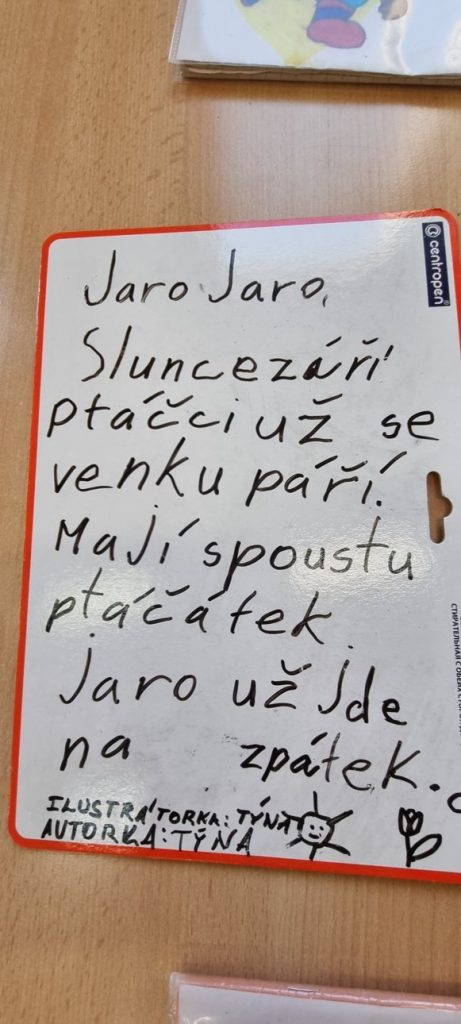 centropen
Jaro Jaro,
Slunce září
ptáčci už se
venku páří.
Mají spoustu
ptáčátek.
jaro už jde
na zpátek.
ILUSTRÁTORKA: TÝNA
AUTORKA: TÝNA
СТИРАТЕЛЬНАЯ С ОБЕИХ СТОРОН